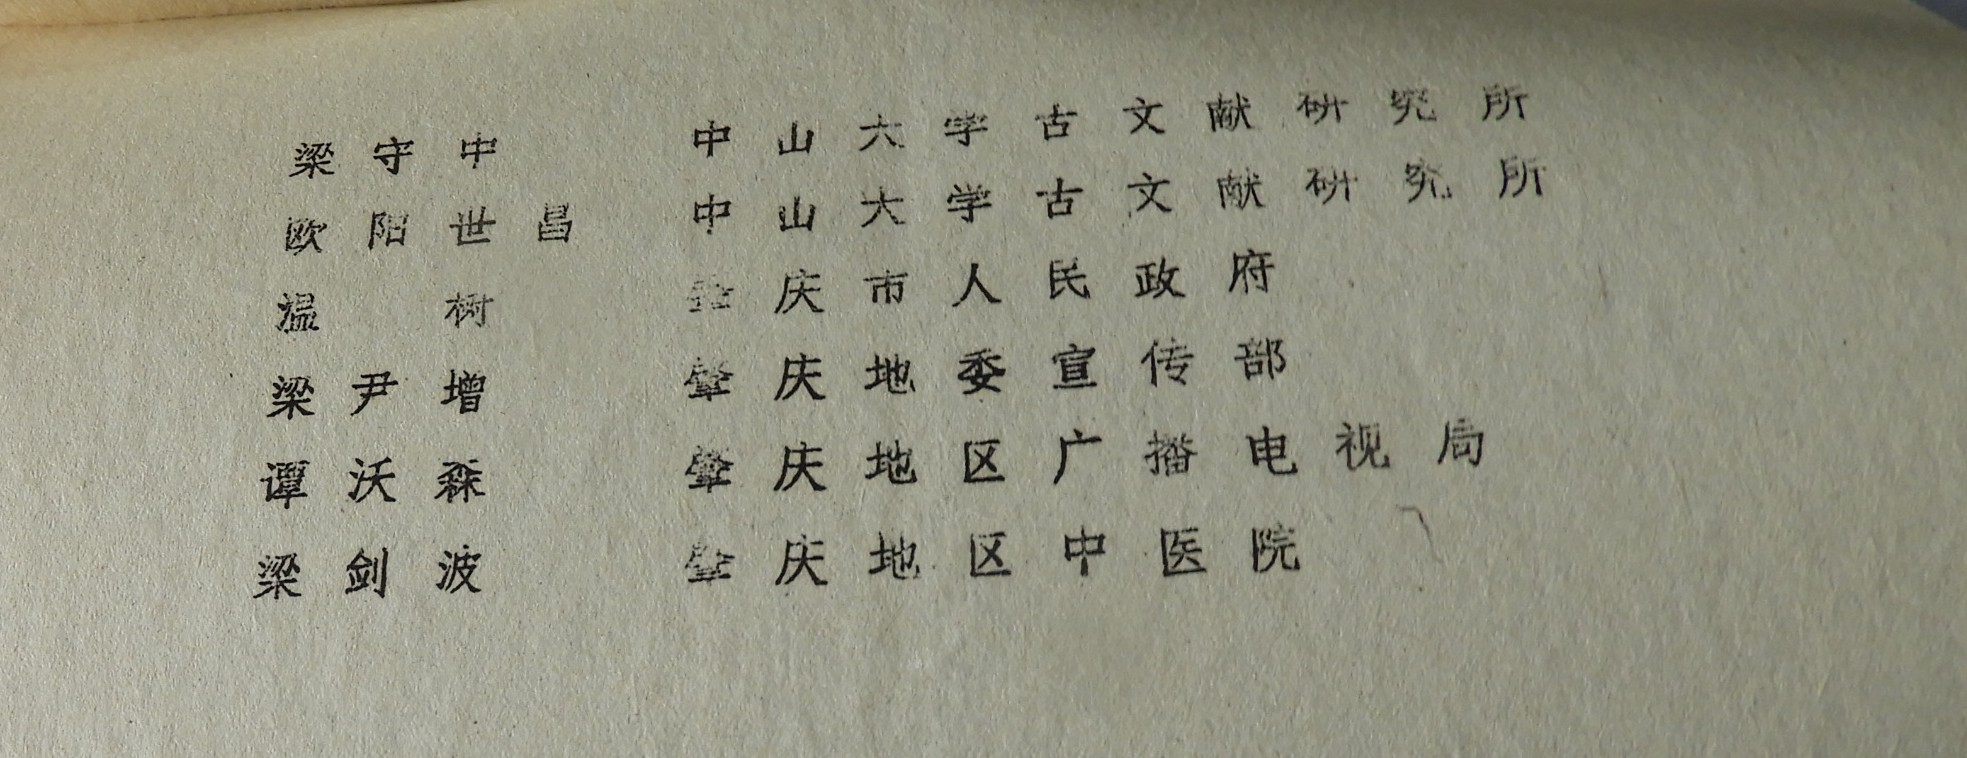 梁守中 中山大学古文献研究所
欧阳世昌 中山大学古文献研究所
温树 肇庆市人民政府
梁尹增 肇庆地委宣传部
谭沃森 肇庆地区广播电视局
梁剑波 肇庆地区中医院